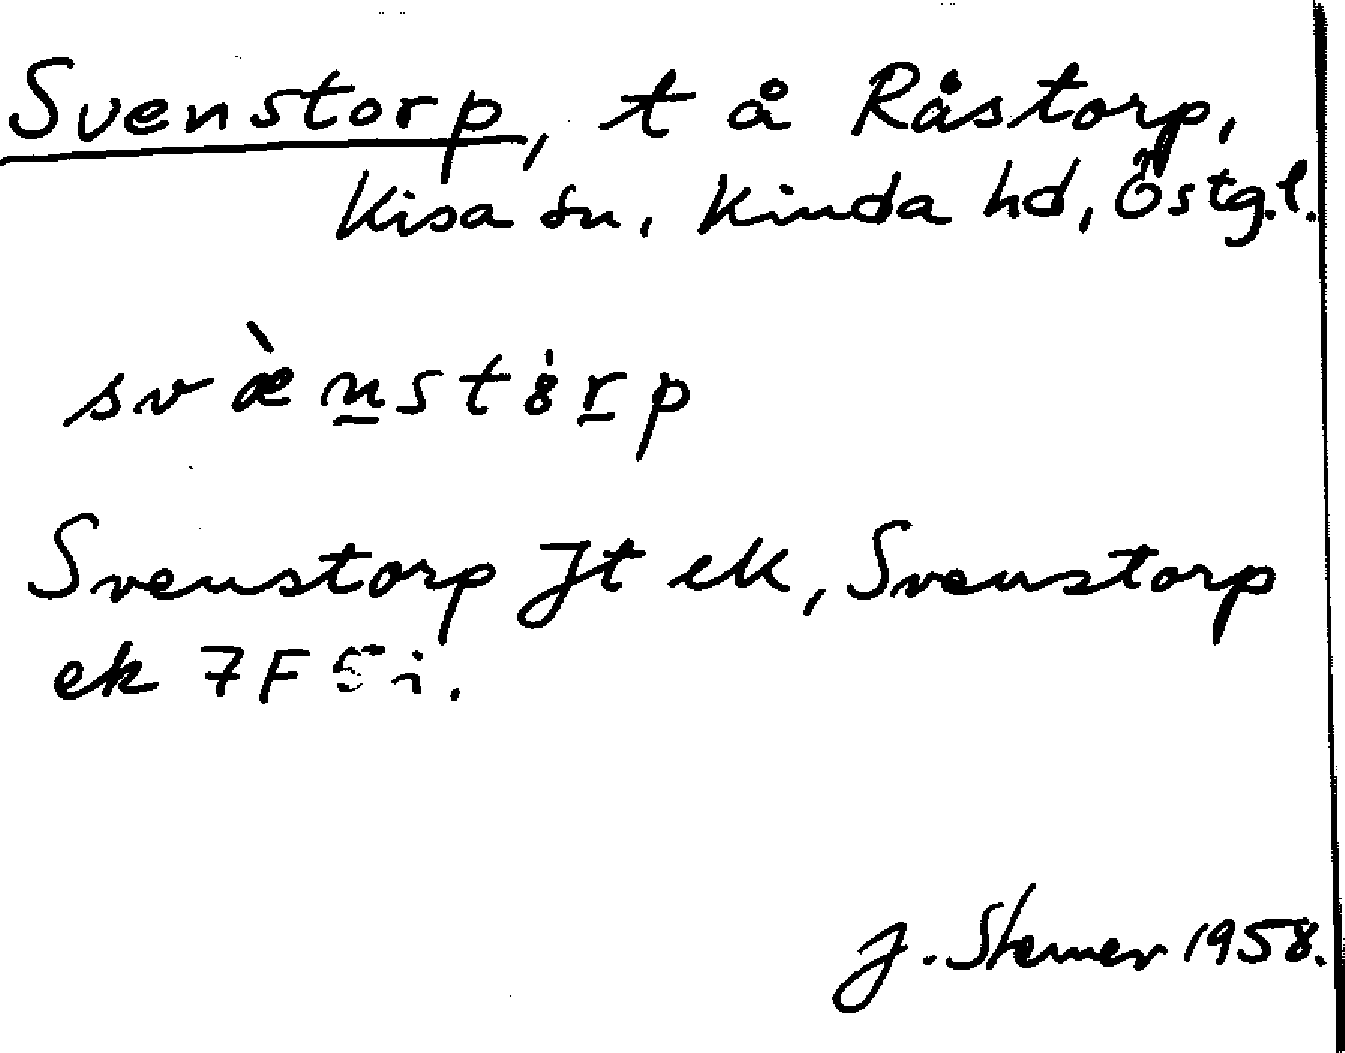 Svenstorp, t å Råstorp,
Kisa sn, Kinda hd, Östg.l.
svæ̀nstȯrp
Svenstorp Jt ek, Svenstorp
ek 7F 5 i.
J. Sterner 1958.